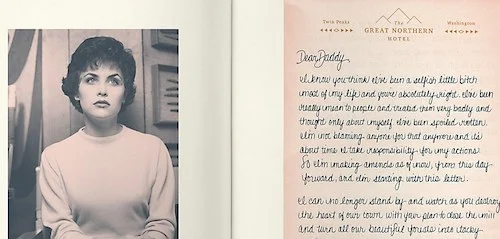 Twin Peaks
The
GREAT NORTHERN
HOTEL
Washington
Dear Daddy,
I know you think I've been a selfish little bitch
most of my life and you're absolutely right. I've been
really mean to people and treated them very badly and
thought only about myself. I've been spoiled rotten.
I'm not blaming anyone for that anymore and it's
about time I take responsibility for my actions.
So I'm making amends as of now, from this day
forward, and I'm starting with this letter.
I can no longer stand by and watch as you destroy
the heart of our town with your plan to close the mill
and turn all our beautiful forests into tacky